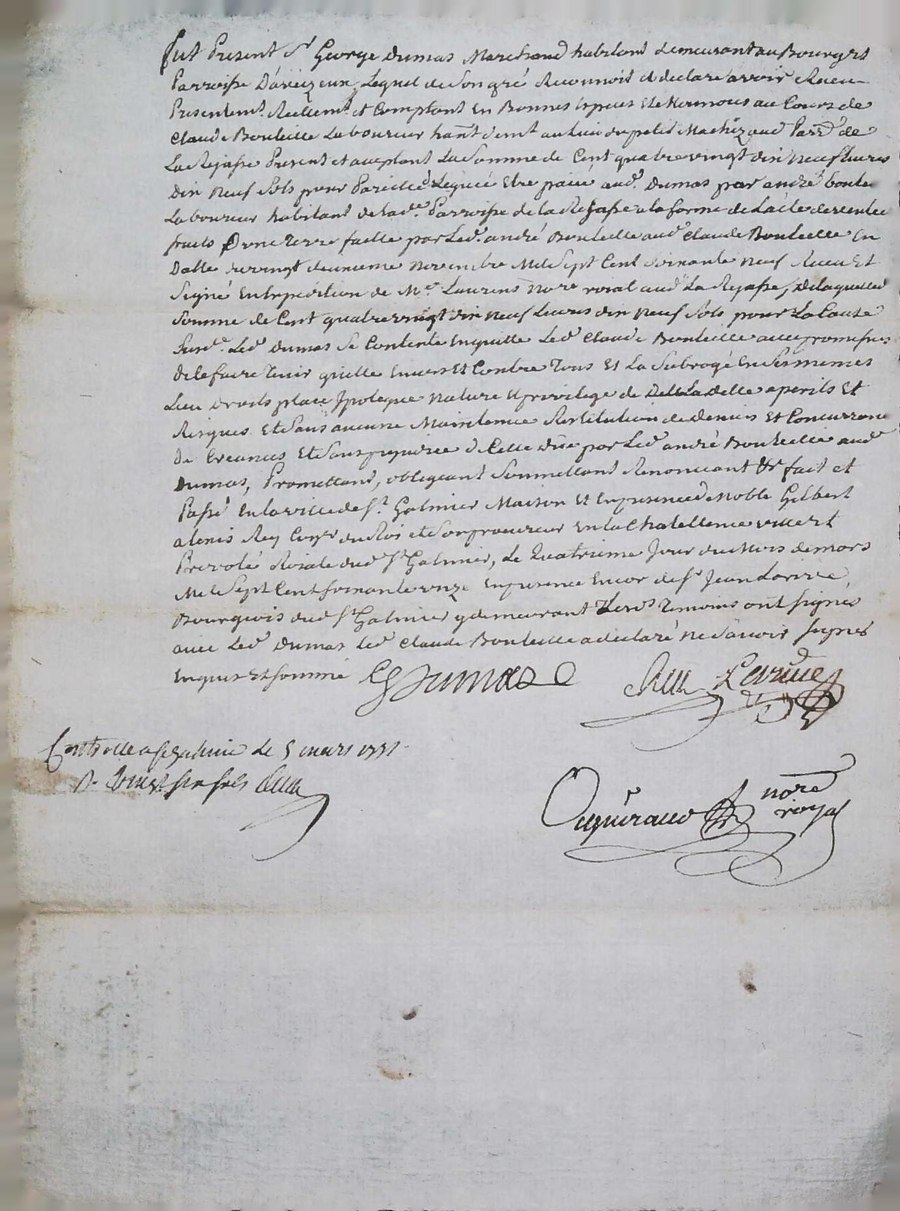 fut Present Sr. George Dumas Marchand habitant demeurant au Bourg et
Parroisse D'aveizeux, Lequel de Son gré Reconnoit et declare avoir Receu
Presentemt. Reellemt. et Comptant En Bonnes Especes Et le tout au Cours de
Claude Bouteille Laboureur hant. demt. au Lieu du petit Parr. de
La Rajasse Present et aceptant La Somme de Cent quatre vingt dix Neuf Livres
dix Neuf Sols pour Pareille Leguée Etre paiée aud. Dumas par andré boute
Laboureur habitant de lade. Parroisse de la Rajasse a la forme de L'acte de vente
fruits D'une terre faitte par Led. andré Bouteille aud. Claude Bouteille En
Datte du vingt deuxieme Novembre Mil Sept Cent Soixante Neuf Receu Et
Signé En Expedition de Me. Laurens Nore. roial aud. La Rajasse, de laquelle
Somme de Cent quatre vingt dix Neuf Livres dix Neuf Sols pour La Cause
Susd. Led. Dumas Se Contente En quitte Led. Claude Bouteille avec promesse
de le faire tenir quitte Envers Et Contre Tous Et La Subrogé En Ses memes
Lieu Droits place Ipoteque Nature Et privilege de Lade. dette a perils Et
Risques Et Sans aucune Maintenue Restitution de Deniers Et Concurrance
de Creances Et Sans prejudice de Celle düe par Led. andré Bouteille aud.
Dumas, Promettant, obligeant Soumettant Renonceant &c fait et
Passé En la ville de St. Galmier Maison Et En presence de Noble Gilbert
alexis Rey Coner. du Roi et Son procureur En la Chatellenie et
Prevoté Roiale dud. St. Galmier, Le Quatrieme Jour du Mois de mars
Mil Sept Cent Soixante onze En presence Encor de Sr. Jean Larivée
Bourgeois dud. St. Galmier y demeurant Les Temoins ont signes
avec Led. Dumas Led. Claude Bouteille a declaré Ne Scavoir Signer
Enquis Et Sommé GDumas Larivée
Controllé a St galmier Le 5 mars 1771
R. Vingt six sols
nore. royal